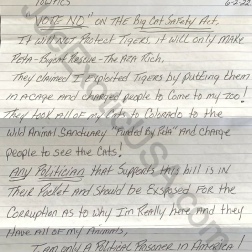 POLITICS 6-2-22
"VOTE NO" ON THE Big Cat SaFety Act.
It will Not Protect Tigers, it will only make
Peta-BigCat Rescue-The ARA Rich.
They claimed I exploited Tigers by putting them
in a cage and charged people to Come to my Zoo!
They took all of my Cats to Colorado to the
Wild Animal Sanctuary "Funded By Peta" and Charge
people to See the Cats!
Any Politician that Supports this bill is in
Their Pocket and Should be Exposed For the
Corruption as to why I'm Really here and they
Have all of my Animals,
I am only A Political Prisoner in America